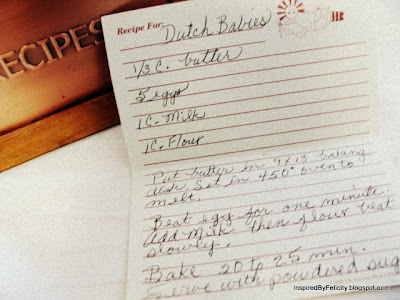 RECIPES
Recipe For: Dutch Babies
1/3 C. butter
5 eggs
1 C. Milk
1 C. Flour
Put butter in 9x13 baking
dish. Set in 450° oven to
melt.
Beat egg for one minute.
Add Milk then flour beat
slowly.
Bake 20 to 25 min.
Serve with powdered sug
InspiredByFelicity.blogspot.com